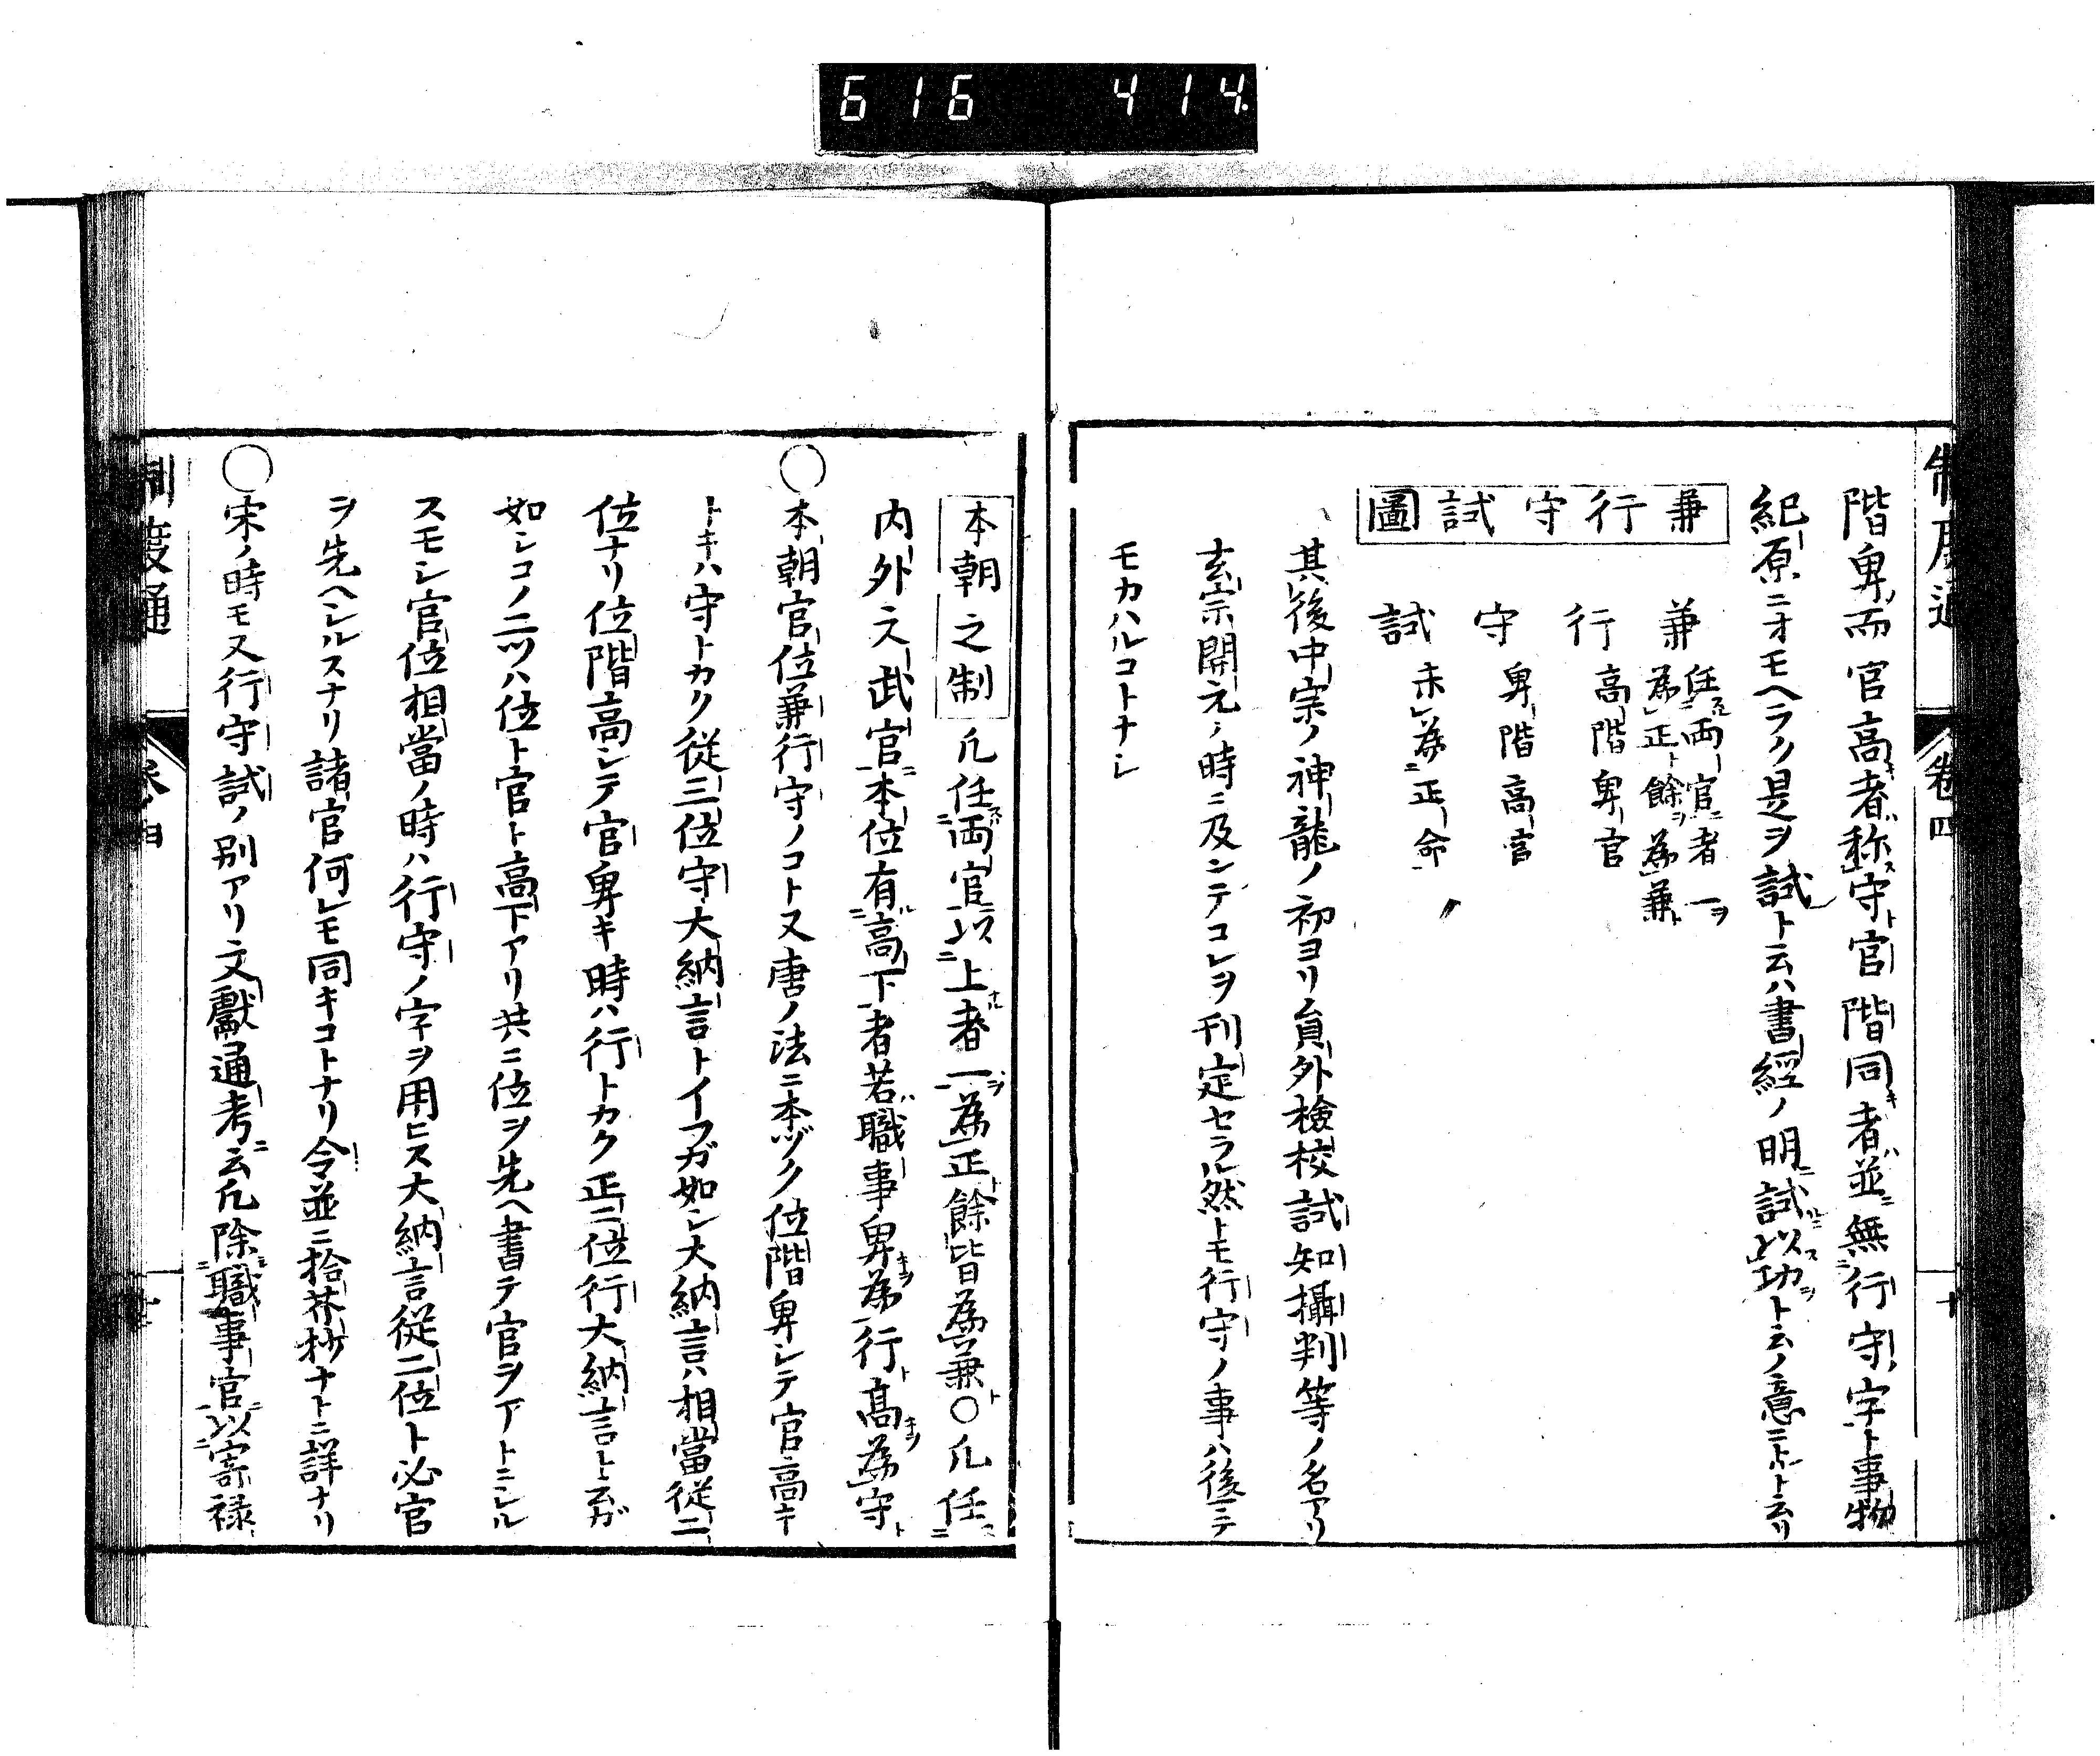 616 414
制度通 卷四 十
階卑而官高者称守官階同者並無行守字ト事物
紀原ニオモヘラク是ヲ試ト云ハ書經ノ明試以功ト云ノ意ニトルト云リ
兼行守試圖
兼 任両官者一為正餘為兼
行 高階卑官
守 卑階高官
試 未為正命
其後中宗ノ神龍ノ初ヨリ員外檢校試知攝判等ノ名アリ
玄宗開元ノ時ニ及ンデコレヲ刊定セラル然トモ行守ノ事ハ後ニテ
モカハルコトナシ
本朝之制 凡任両官以上者一為正餘皆為兼○凡任
内外文武官本位有高下者若職事卑為行高為守
○本朝官位兼行守ノコト又唐ノ法ニ本ヅク位階卑シテ官高キ
トキハ守トカク從三位守大納言トイフガ如シ大納言ハ相當從二
位ナリ位階高シテ官卑キ時ハ行トカク正二位行大納言ト云ガ
如シコノ二ツハ位ト官ト高下アリ共ニ位ヲ先ヘ書テ官ヲアトニシル
スモシ官位相當ノ時ハ行守ノ字ヲ用ヒス大納言從二位ト必官
ヲ先ヘシルスナリ諸官何レモ同キコトナリ令並ニ拾芥抄ナトニ詳ナリ
○宋ノ時モ又行守試ノ別アリ文獻通考云凡除職事官以寄禄
制度通